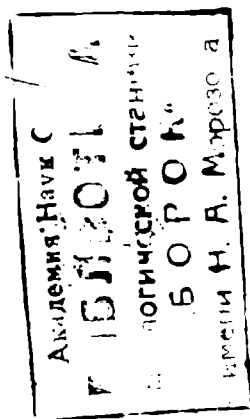 Академия Наук С
БИБЛИОТЕКА
логической станции
„БОРОК“
имени Н. А. Морозова